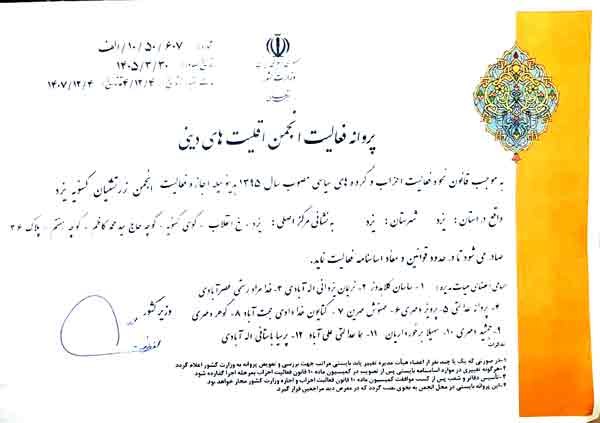 جمهوری اسلامی ایران
وزارت کشور
شماره: ۶۰۷/۵۰/۱۰/الف
۱۴۰۵/۳/۳۰
۱۴۰۷/۱۲/۴
پروانه فعالیت انجمن اقلیت های دینی
به موجب قانون نحوه فعالیت احزاب و گروه های سیاسی مصوب سال ۱۳۹۵ بدینوسیله اجازه فعالیت انجمن زرتشتیان کسنویه یزد
واقع در استان: یزد شهرستان: یزد به نشانی مرکز اصلی: یزد - خ انقلاب - کوی کسنویه - کوچه حاج سید محمد کاظم - کوچه رستم - پلاک ۳۶
صادر می شود تا در حدود قوانین و مفاد اساسنامه فعالیت نماید.
اسامی اعضای هیات مدیره: ۱- ساسان کلامدوز ۲- نریمان یزدانی اله آبادی ۳- خدامراد رستمی عصرآبادی
۴- پروانه عدالتی ۵- پرویز دهمری ۶- مهنوش مهربن ۷- کتایون خدادادی حجت آباد ۸- گوهر دهمری
۹- جمشید دهمری ۱۰- سهیلا برخورداریان ۱۱- هما عدالتی علی آباد ۱۲- پریسا باستانی اله آبادی
وزیر کشور
تذکرات
۱-در صورتی که یک یا چند نفر از اعضاء هیأت مدیره تغییر یابد بایستی مراتب جهت بررسی و تعویض پروانه به وزارت کشور اعلام گردد
۲-هرگونه تغییری در موارد اساسنامه بایستی پس از تصویب در کمیسیون ماده ۱۰ قانون فعالیت احزاب بمرحله اجرا گذارده شود.
۳-تأسیس دفاتر و شعب پس از کسب موافقت کمیسیون ماده ۱۰ قانون فعالیت احزاب و اجازه وزارت کشور مجاز خواهد بود.
۴-این پروانه بایستی در محل انجمن به نحوی نصب گردد که در معرض دید مراجعین قرار گیرد.